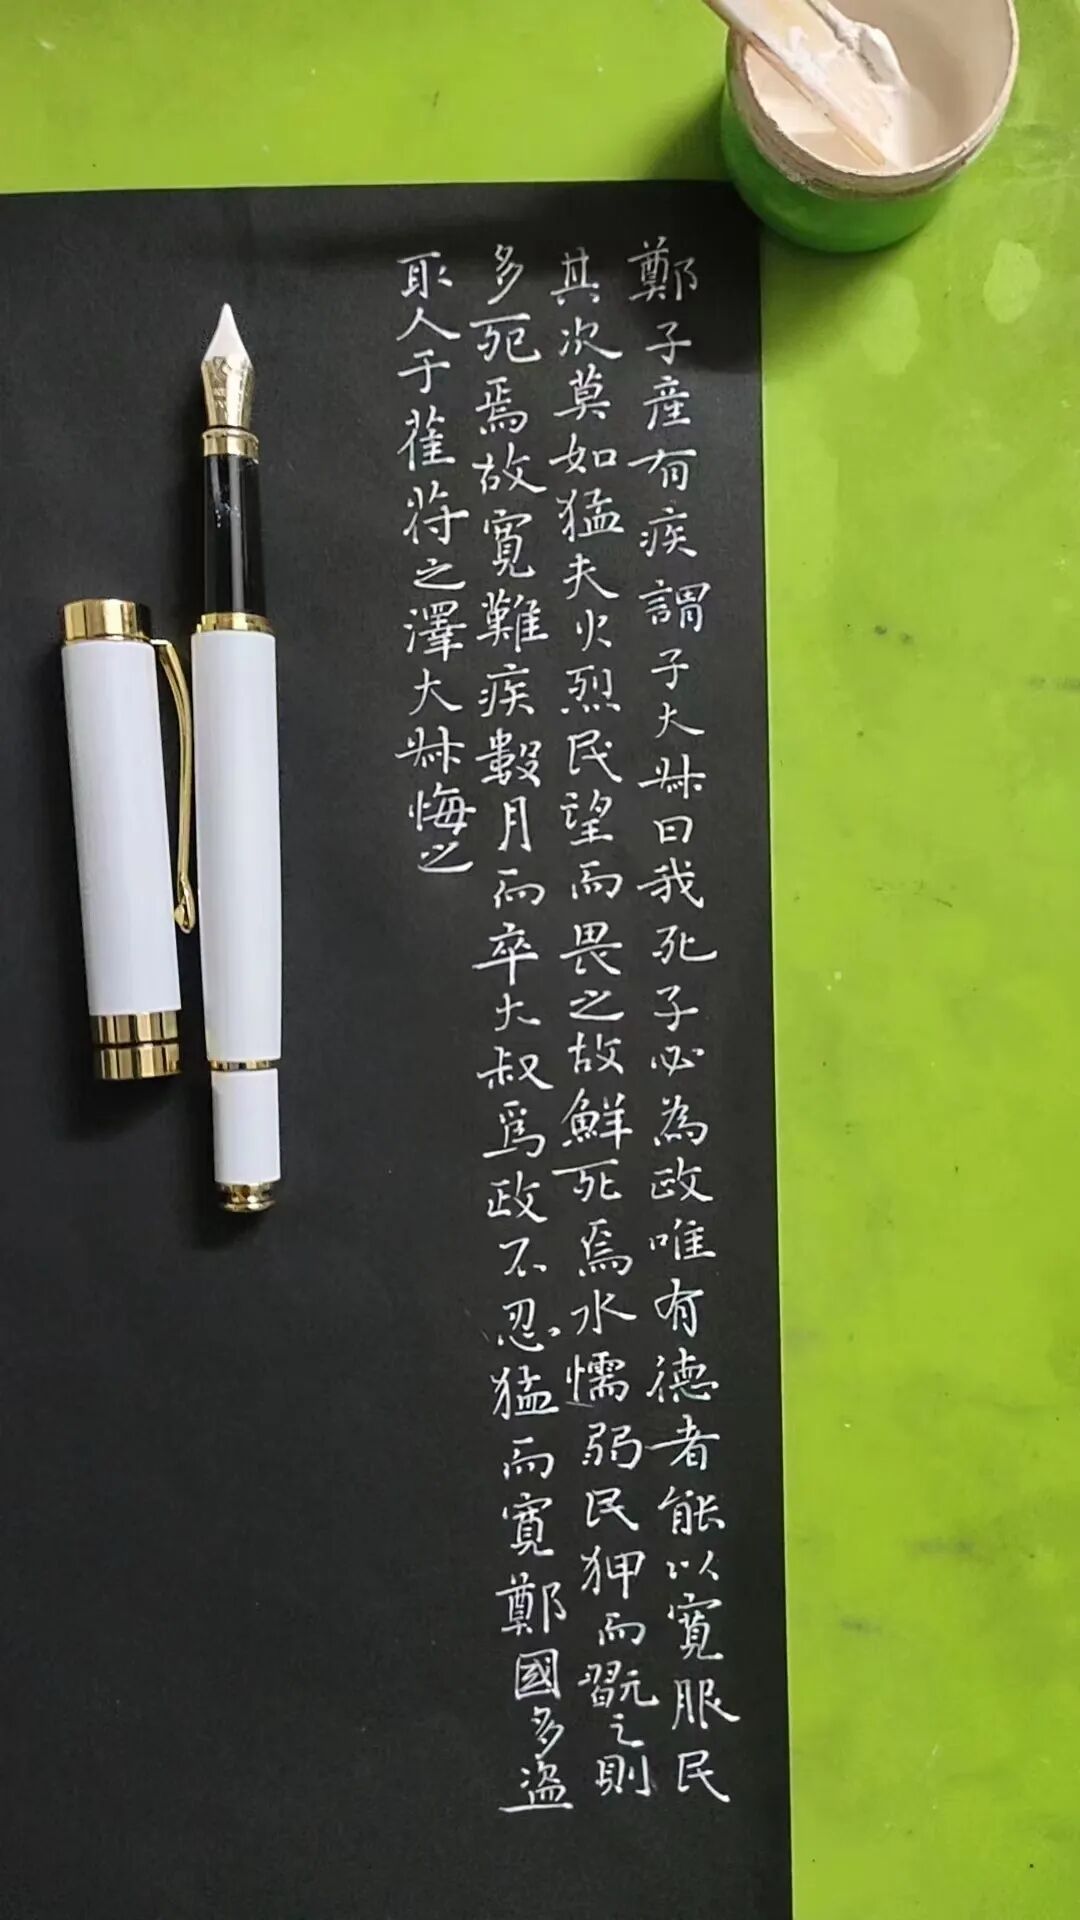 鄭子産有疾謂子大叔曰我死子必為政唯有德者能以寬服民
其次莫如猛夫火烈民望而畏之故鮮死焉水懦弱民狎而翫之則
多死焉故寬難疾數月而卒大叔爲政不忍猛而寬鄭國多盜
取人于萑苻之澤大叔悔之